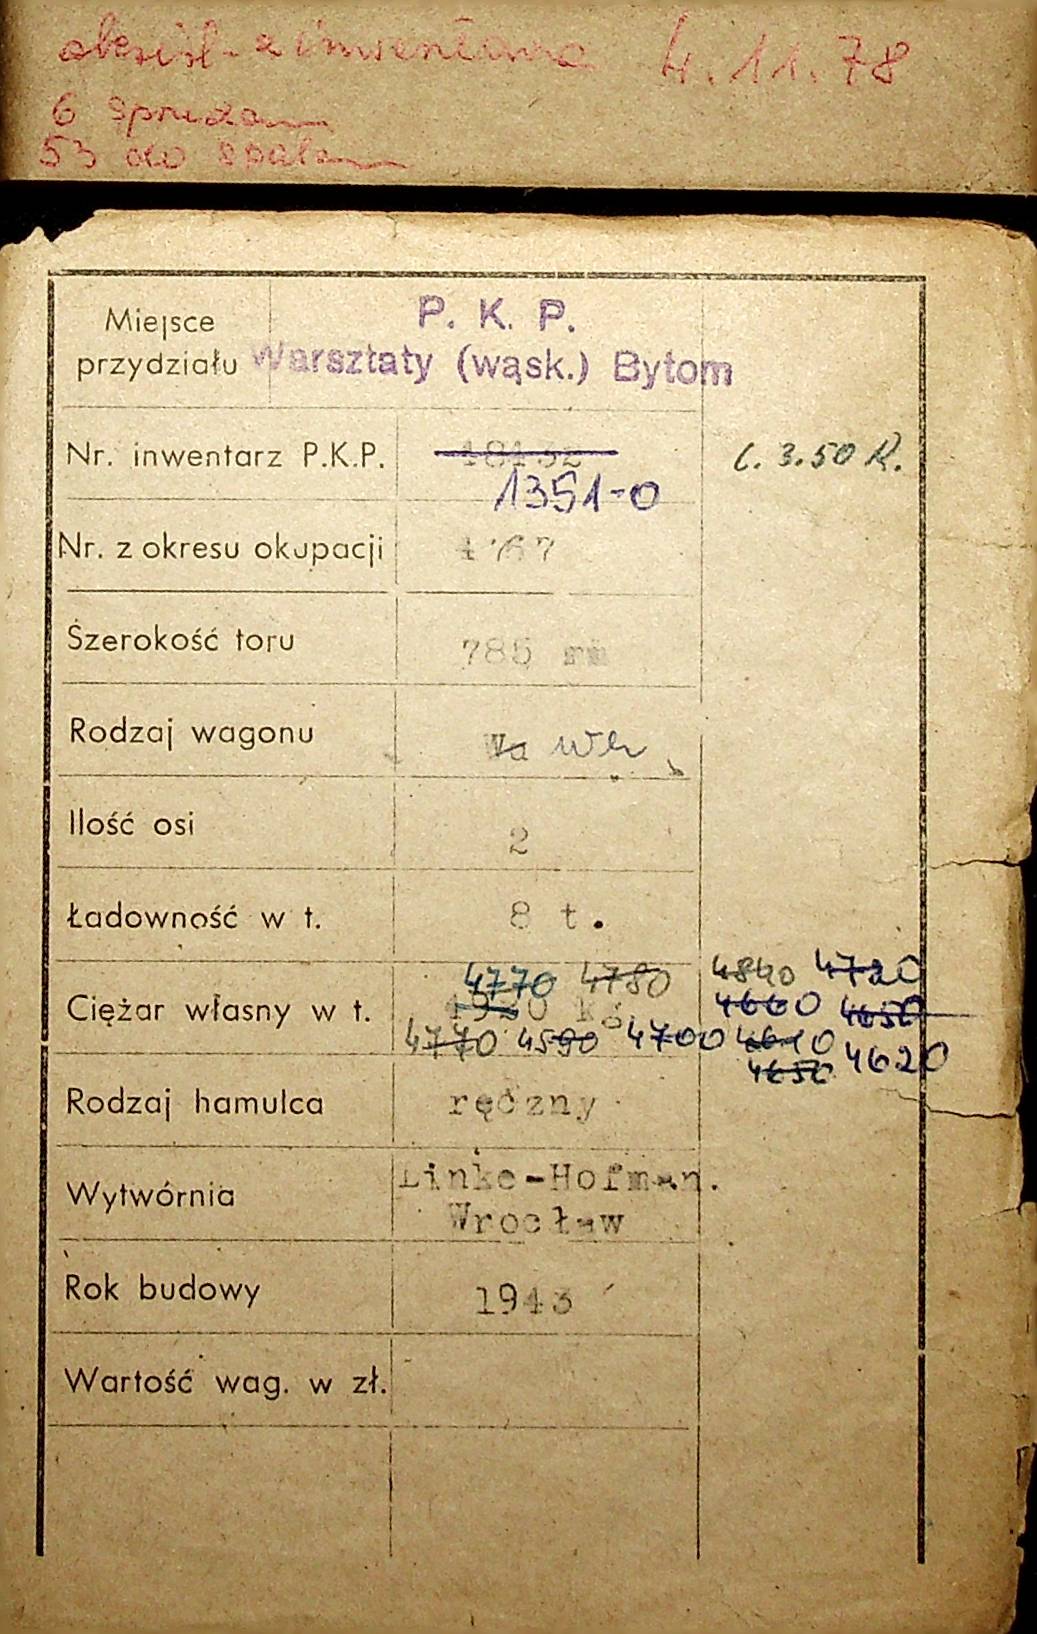 4.11.78
6
53 do
P. K. P.
Miejsce przydziału Warsztaty (wąsk.) Bytom
Nr. inwentarz P.K.P. 18132 3.50 R.
1351-0
Nr. z okresu okupacji
Szerokość toru 785 mm
Rodzaj wagonu Wa
Ilość osi 2
Ładowność w t. 8 t.
4770 4780 4840 4720
Ciężar własny w t. kg. 4660 4650
4770 4590 4700 4610 4620
4650
Rodzaj hamulca ręczny
Wytwórnia Linke-Hofman. Wrocław
Rok budowy 1943
Wartość wag. w zł.